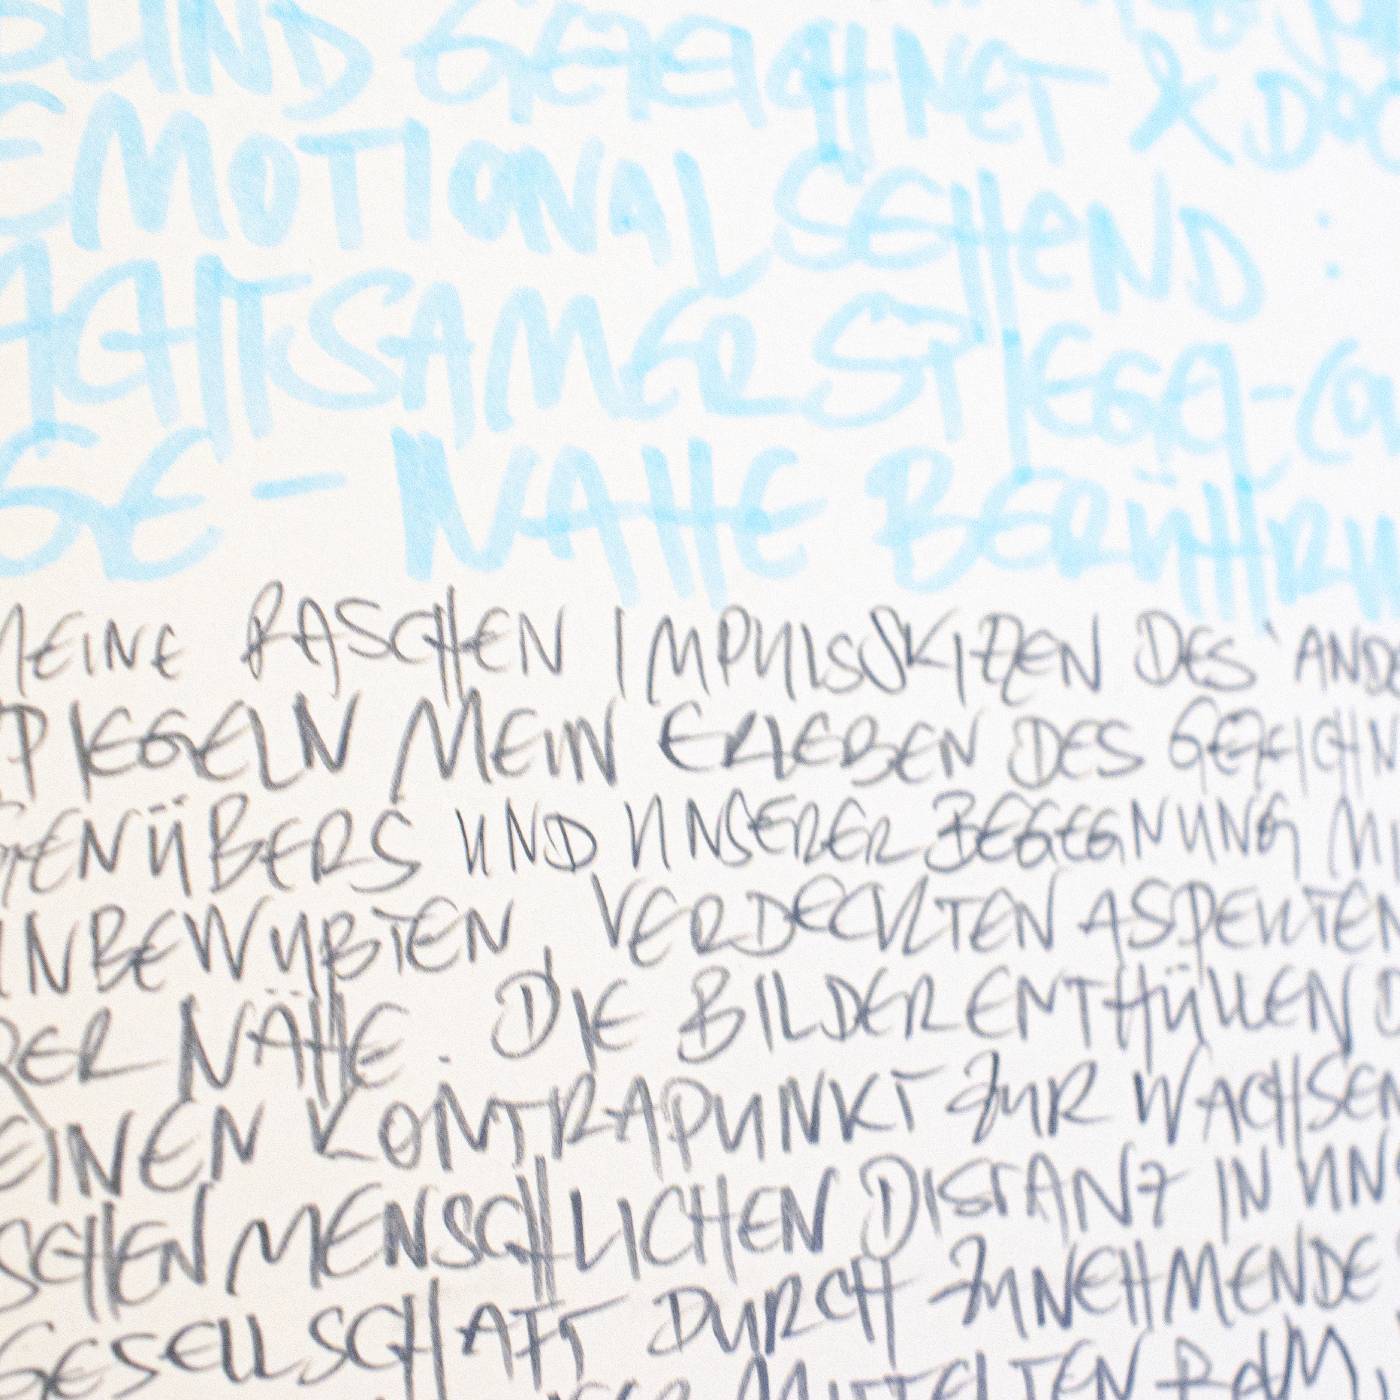 BLIND GEZEICHNET & DOC
EMOTIONAL SEHEND :
ACHTSAMER SPIEGEL-CO
GE - NÄHE BERÜHRU
MEINE RASCHEN IMPULSSKIZZEN DES ANDE
SPIEGELN MEIN ERLEBEN DES GEZEICHN
GENÜBERS UND UNSERER BEGEGNUNG MI
UNBEWUßTEN, VERDECKTEN ASPEKTEN
DER NÄHE. DIE BILDER ENTHÜLLEN
EINEN KONTRAPUNKT ZUR WACHSEN
SCHEN MENSCHLICHEN DISTANZ IN UN
GESELLSCHAFT DURCH ZUNEHMENDE
MITTELTEN